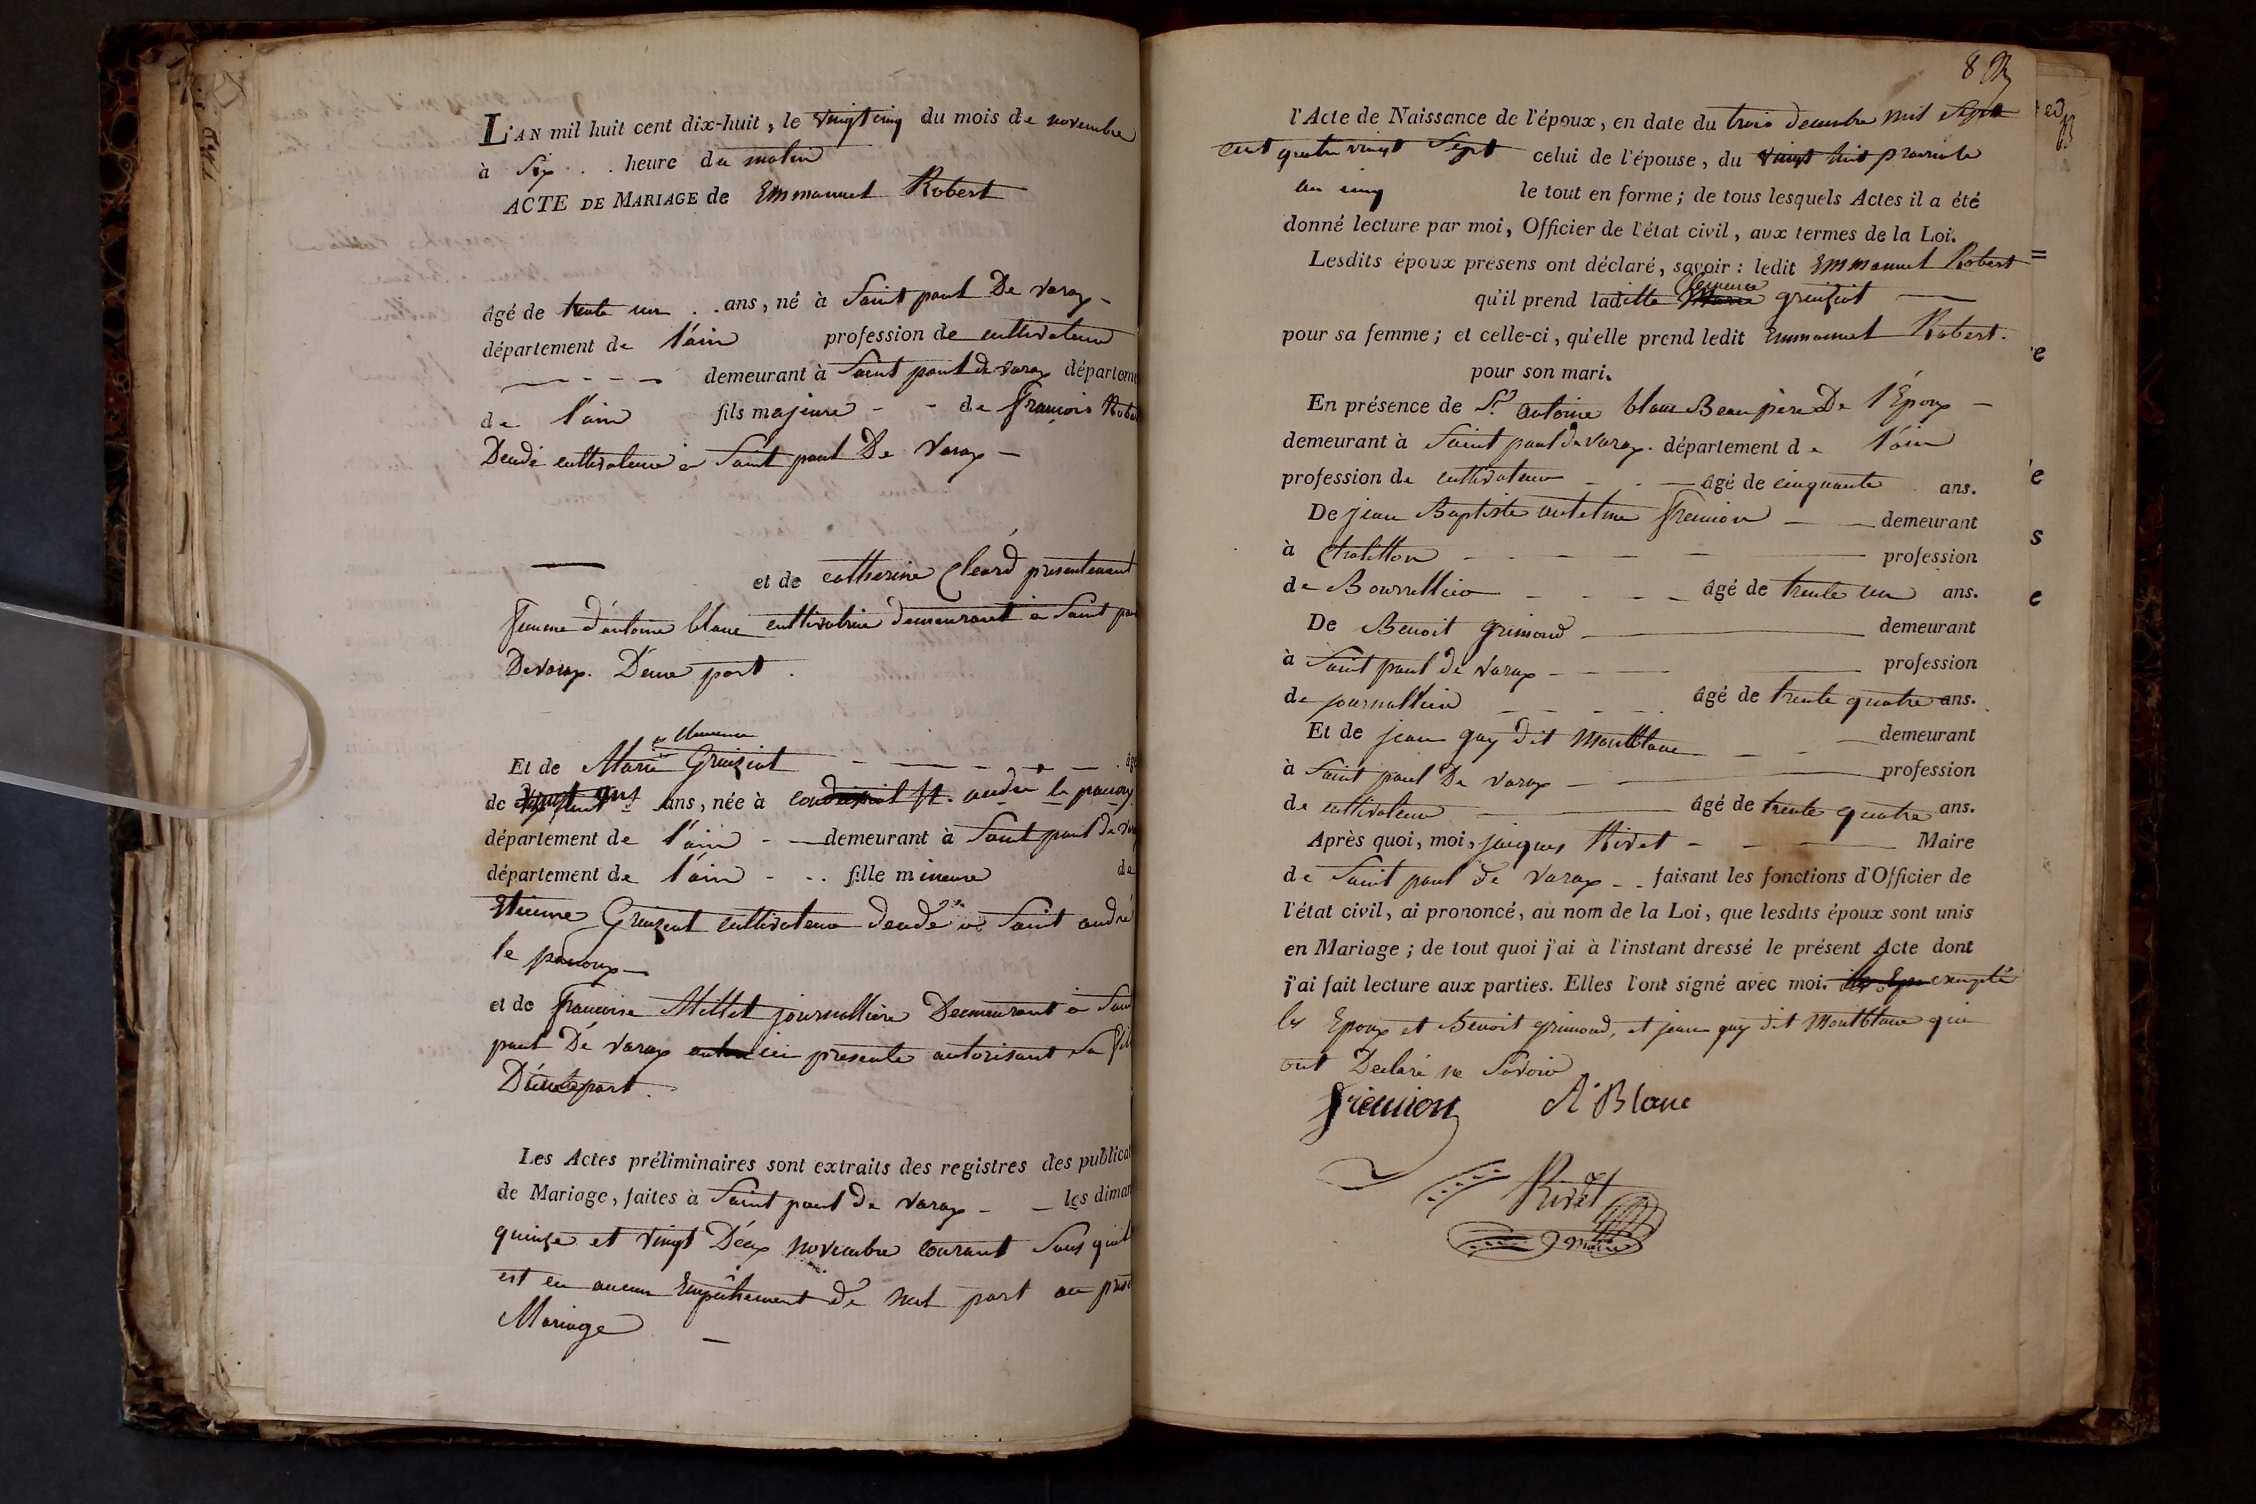 L'AN mil huit cent dix-huit, le vingt cinq du mois de novembre
à Six . . heure du matin
ACTE DE MARIAGE de Emmanuel Robert
âgé de trente un . . ans, né à Saint paul De varax -
département de l'ain profession de cultivateur
demeurant à Saint paul de varax départeme
de l'ain fils majeure - - de françois Rober
Decedé cultivateur à Saint paul De Varax -
et de catherine Cleard presentement
femme d'antoine blanc cultivatrice demeurant à Saint pau
De varax. D'eune part.
clemence
Et de Marie Greuziat âgé
de ans, née à St. andré le panoux
département de l'ain - - demeurant à Saint paul de var
département de l'ain - .. fille mineure de
Etienne Greuziat cultivateur decedé à Saint andré
le panoux -
et de françoise Millet journalliere Demeurant à Sain
paul De varax ici presente autorisant sa fill
D'autre part.
Les Actes préliminaires sont extraits des registres des publicat
de Mariage, faites à Saint paul de varax - - les diman
quinze et vingt Deux novembre courant Sans quil
est eu aucun Empêchement de nul part au prese
Mariage -
8
l'Acte de Naissance de l'époux, en date du trois decembre mil Sept
cent quatre vingt Sept celui de l'épouse, du vingt huit prairiale
an cinq le tout en forme; de tous lesquels Actes il a été
donné lecture par moi, Officier de l'état civil, aux termes de la Loi.
Lesdits époux présens ont déclaré, savoir: ledit Emmanuel Robert
clemence
qu'il prend ladite Marie greuziat
pour sa femme; et celle-ci, qu'elle prend ledit Emmanuel Robert.
pour son mari.
En présence de Sr. antoine blanc Beau pere De l'Époux -
demeurant à Saint paul de varax. département de l'ain
profession de cultivateur - - âgé de cinquante ans.
De jean Baptiste antelme fremion - - demeurant
à Chatillon - - - - profession
de Bourrellier - - - - âgé de trente un ans.
De Benoit grimond - demeurant
à Saint paul de varax - - - profession
de journallier - - - - âgé de trente quatre ans.
Et de jean guy dit Montblanc - - demeurant
à Saint paul De varax - - profession
de cultivateur âgé de trente quatre ans.
Après quoi, moi, jacques Rivet - - Maire
de Saint paul de Varax - - faisant les fonctions d'Officier de
l'état civil, ai prononcé, au nom de la Loi, que lesdits époux sont unis
en Mariage; de tout quoi j'ai à l'instant dressé le présent Acte dont
j'ai fait lecture aux parties. Elles l'ont signé avec moi. excepté
les Epoux et Benoit grimond, et jean guy dit Montblanc qui
ont Declaré ne Savoir
fremion A Blanc
Rivet
maire